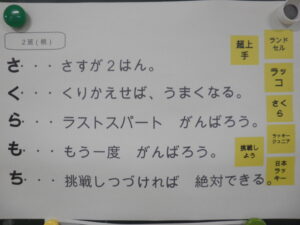 2班(朝)
さ・・・さすが2はん。
く・・・くりかえせば、うまくなる。
ら・・・ラストスパート がんばろう。
も・・・もう一度 がんばろう。
ち・・・挑戦しつづければ 絶対できる。
超上
手
ランド
セル
ラッ
コ
さく
ら
ラッキー
ジュニア
挑戦し
よう
日本
ラッ
キー